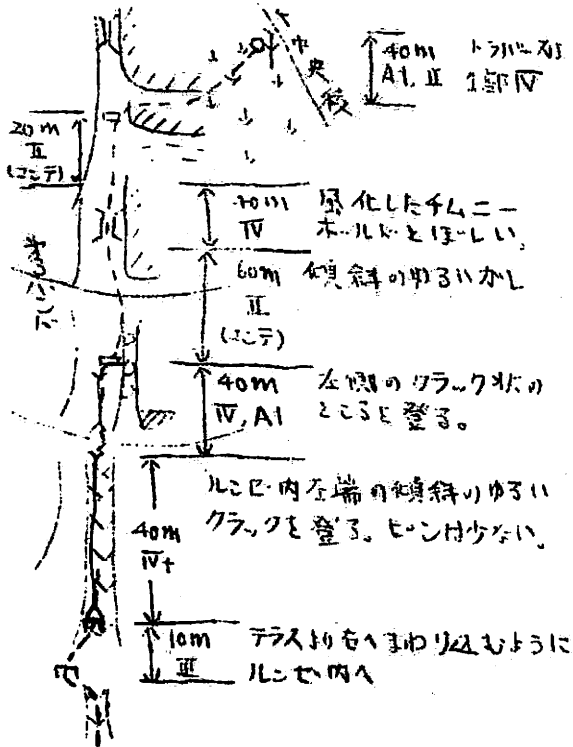 中央稜
40m
A1, II
トラバース
1部IV
20m
II
(コンテ)
40m
IV
風化したチムニー
ホールドとぼしい。
60m
II
(コンテ)
傾斜のゆるいガレ
40m
IV, A1
左側のクラック状の
ところを登る。
40m
IV+
ルンゼ内左端の傾斜のゆるい
クラックを登る。ピンは少ない。
10m
III
テラスより右へまわり込むように
ルンゼ内へ